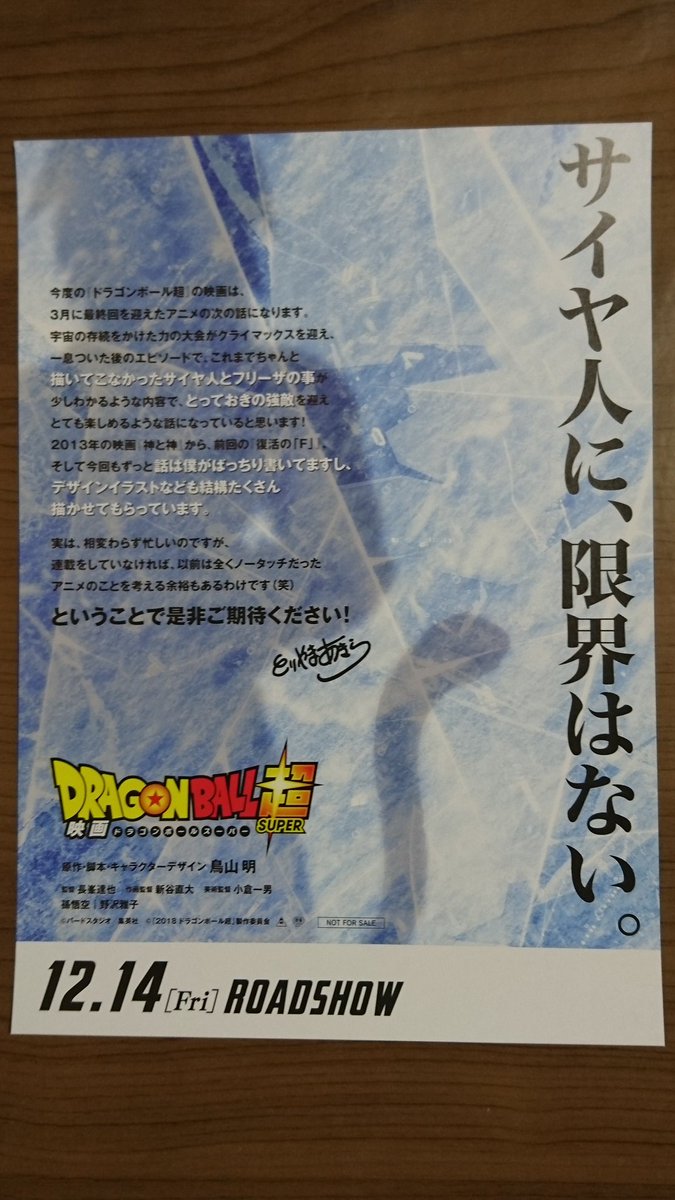 サイヤ人に、限界はない。
今度の『ドラゴンボール超』の映画は、
3月に最終回を迎えたアニメの次の話になります。
宇宙の存続をかけた力の大会がクライマックスを迎え、
一息ついた後のエピソードで、これまでちゃんと
描いてこなかったサイヤ人とフリーザの事が
少しわかるような内容で、とっておきの強敵を迎え
とても楽しめるような話になっていると思います!
2013年の映画『神と神』から、前回の『復活の「F」』、
そして今回もずっと話は僕がばっちり書いてますし、
デザインイラストなども結構たくさん
描かせてもらっています。
実は、相変わらず忙しいのですが、
連載をしていなければ、以前は全くノータッチだった
アニメのことを考える余裕もあるわけです(笑)
ということで是非ご期待ください!
とりやまあきら
DRAGON BALL超
SUPER
映画 ドラゴンボールスーパー
原作・脚本・キャラクターデザイン 鳥山 明
監督 長峯達也 作画監督 新谷直大 美術監督 小倉一男
孫悟空 | 野沢雅子
©バードスタジオ/集英社 ©「2018 ドラゴンボール超」製作委員会 NOT FOR SALE
12.14[Fri] ROADSHOW